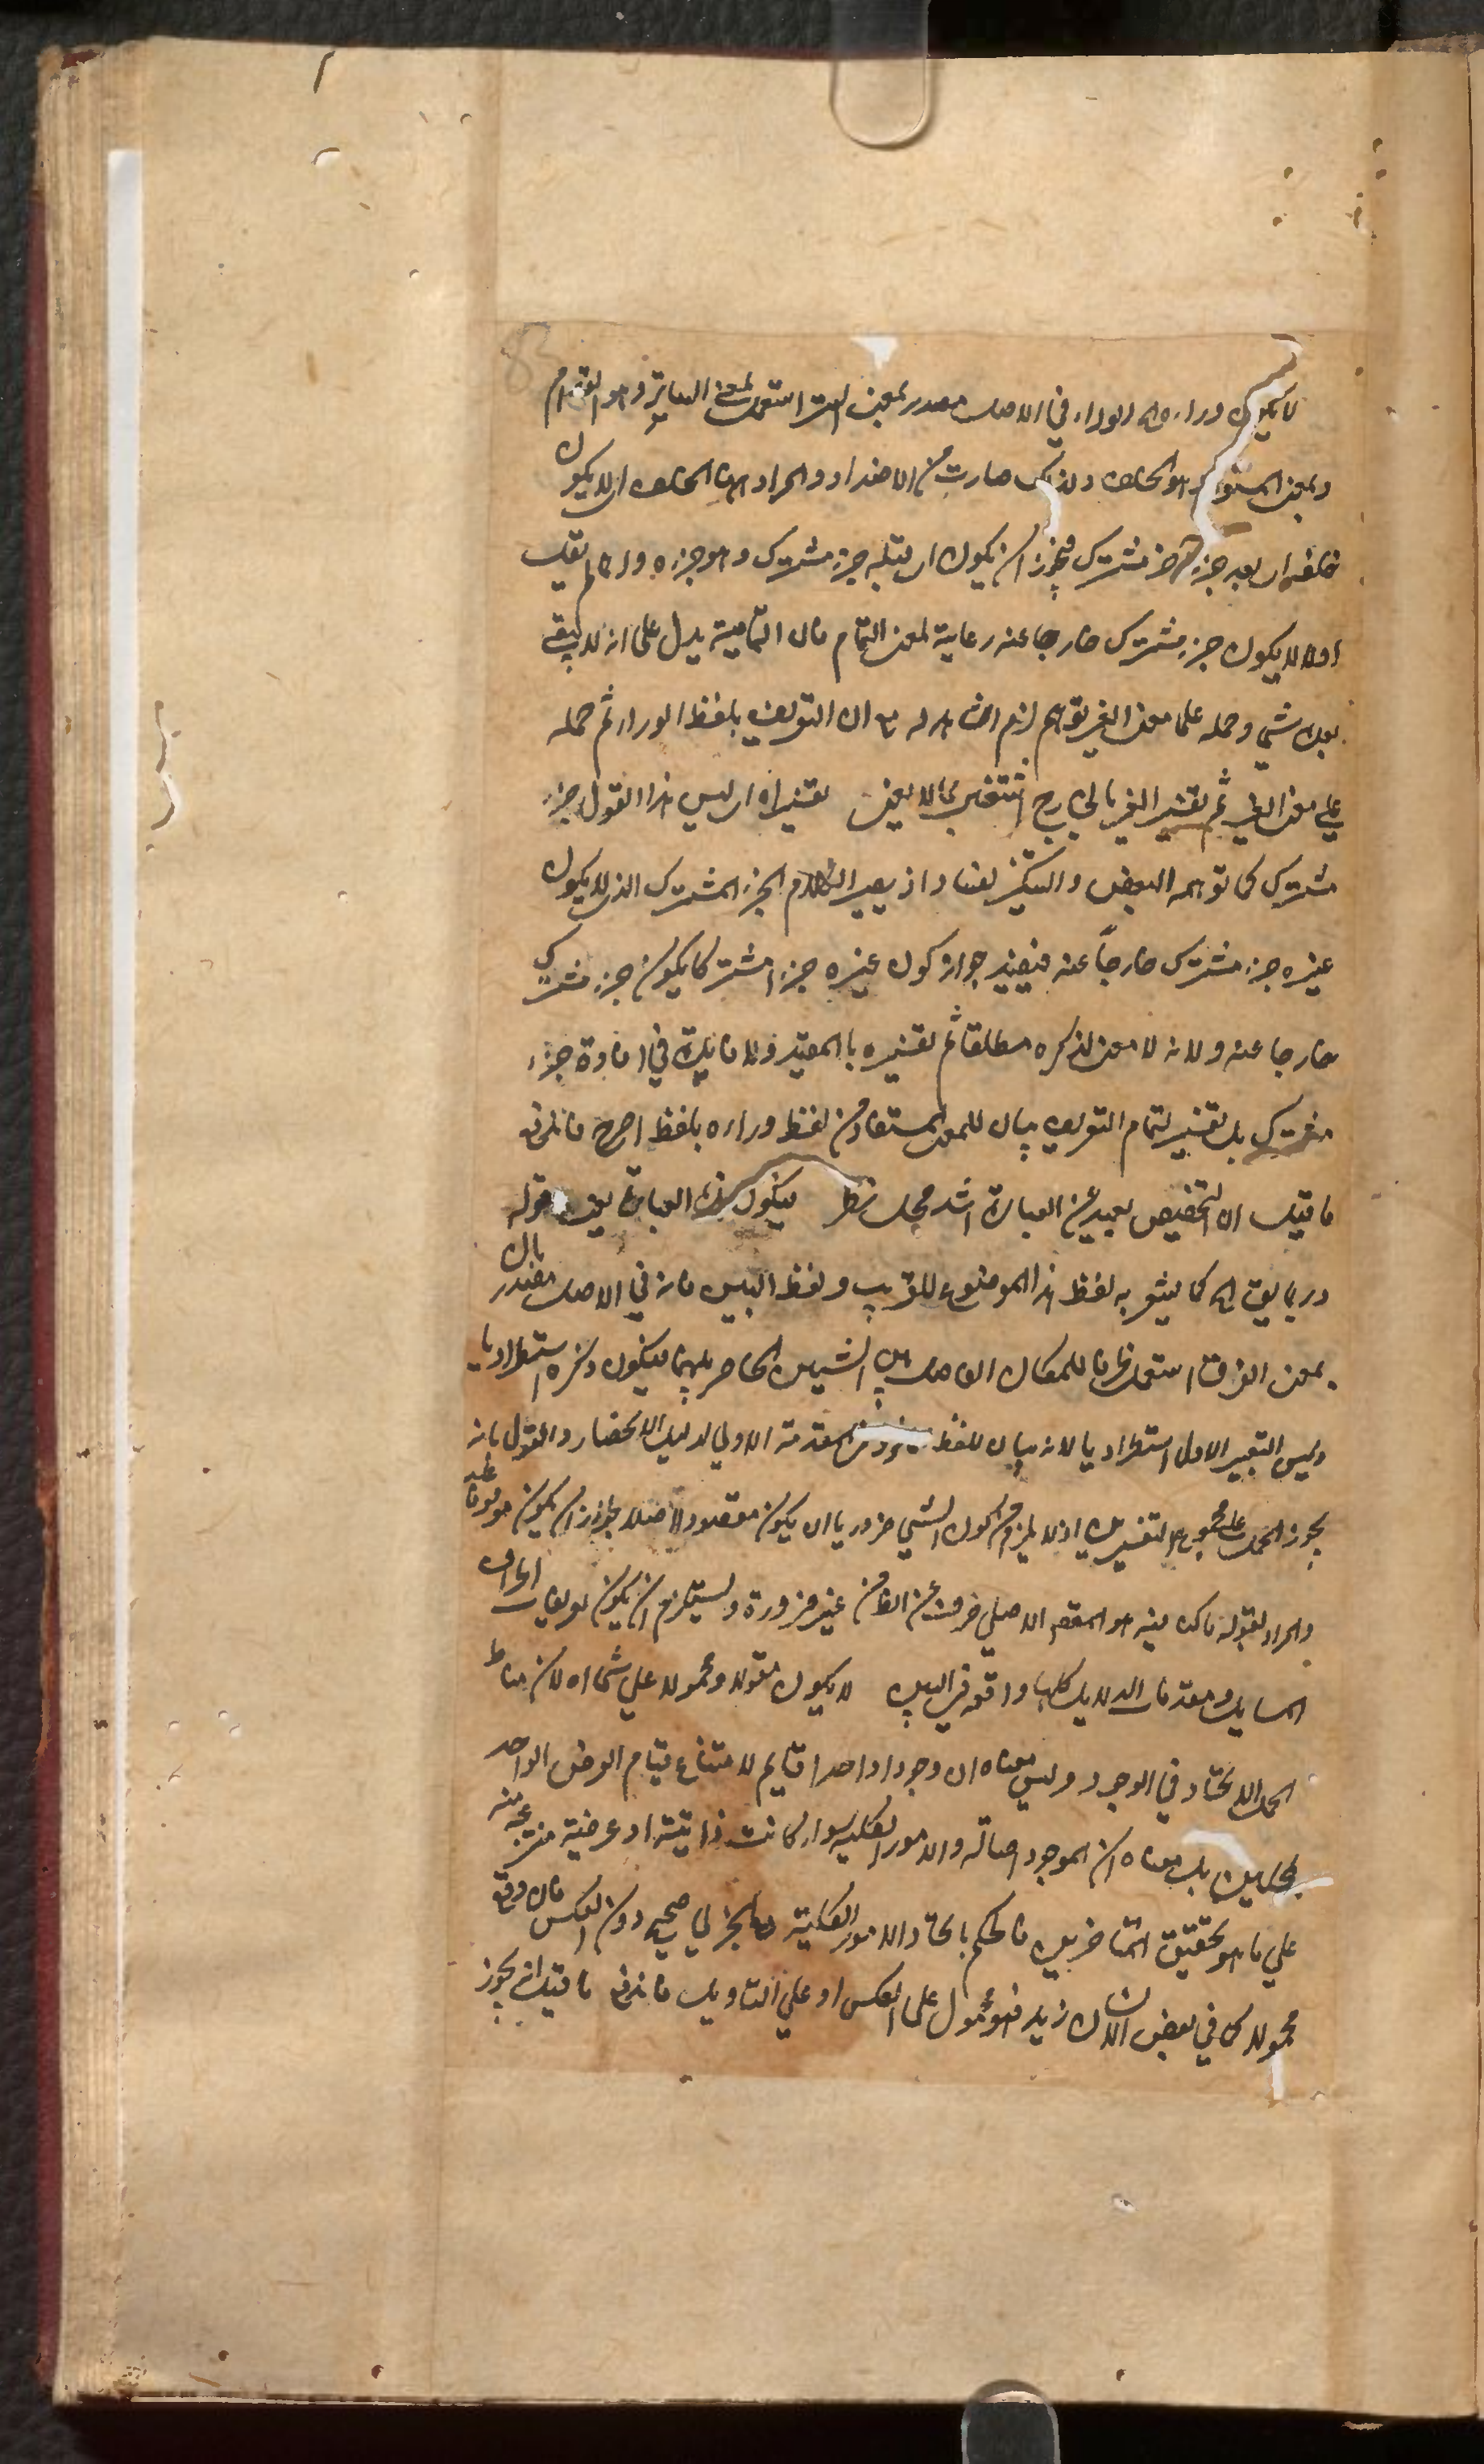 لا يكون وراءه اه الوراء في الاصل مصدر بمعنى الستر استعمل بمعنى الساتر وهو القدام
وبمعنى المستور وهو الخلف ولذلك صارت من الاضداد والمراد ههنا الخلف اى لا يكون
خلفه اى بعد جزء مشترك فيجوز ان يكون اى قبله جزء مشترك وهو جزءه وانما لم يقل
اولا لا يكون جزء مشترك خارجا عنه رعاية لمعنى التمام فان التمامية يدل على انه لا يبقى
بعده شئ وحمله على معنى الغير توهم لزم ان التعريف بلفظ الوراء ثم حمله
على معنى الغير ثم تفسير الغير بالخارج اشتغال بما لا يعنى تفسيراه اى ليس هذا القول جزء
مشترك كما توهمه البعض والتنكير لفساده اذ يصير الكلام الجزء المشترك الذى لا يكون
غيره جزء مشترك خارجاً عنه فيفيد جواز كون غيره جزءا مشتركا يكون جزء مشترك
خارجا عنه ولانه لا معنى لذكره مطلقا ثم تفسيره بالمقيد ولا فايدة في اعادة جزء
مشترك بل تفسير لتمام التعريف بيان للمعنى المستفاد من لفظ وراءه بلفظ اصرح فاندفع
ما قيل ان التخصيص بعيد عن العبارة اشد محل نظر فيكون هذه العبارة يعنى قوله
وربما يقال اه كما يشعر به لفظ هذا الموضوع للقريب ولفظ البين فانه في الاصل مصدر بان
بمعنى الفرق استعمل ظرفا للمكان الفاصل بين الشيئين الحاضر بينهما فيكون ذكره استطراديا
وليس التعبير الاول استطراديا لانه بيان للفظ من المقدمة الاولى لدليل الانحصار والقول بانه
يجوز الحمل على مجموع التفسيرين اذ لا يلزم من كون الشئ ضروريا ان يكون مقصودا اصلا لجواز ان يكون موقوفا عليه
والمراد بقوله ما كنا فيه هو المقصد الاصلي خروج عن الظاهر من غير ضرورة ويستلزم ان يكون تعريفات اطراف
المسايل ومقدمات الدلايل كلها واقعة في البين لا يكون مقولا ومحمولا على شئ اه لان مناط
الحمل الاتحاد في الوجود وليس معناه ان وجودا واحدا قايم لامتناع قيام العرض الواحد
بمحلين بل معناه ان الموجود اصالة والامور الكلية سواء كانت ذاتية او عرضية منتزعة منه
على ما هو تحقيق المتاخرين فالحكم باتحاد الامور الكلية مع الجزئي صحيح دون العكس فان وقع
محمولا كما في بعض الانسان زيد فهو محمول على العكس او على التاويل فاندفع ما قيل انه يجوز